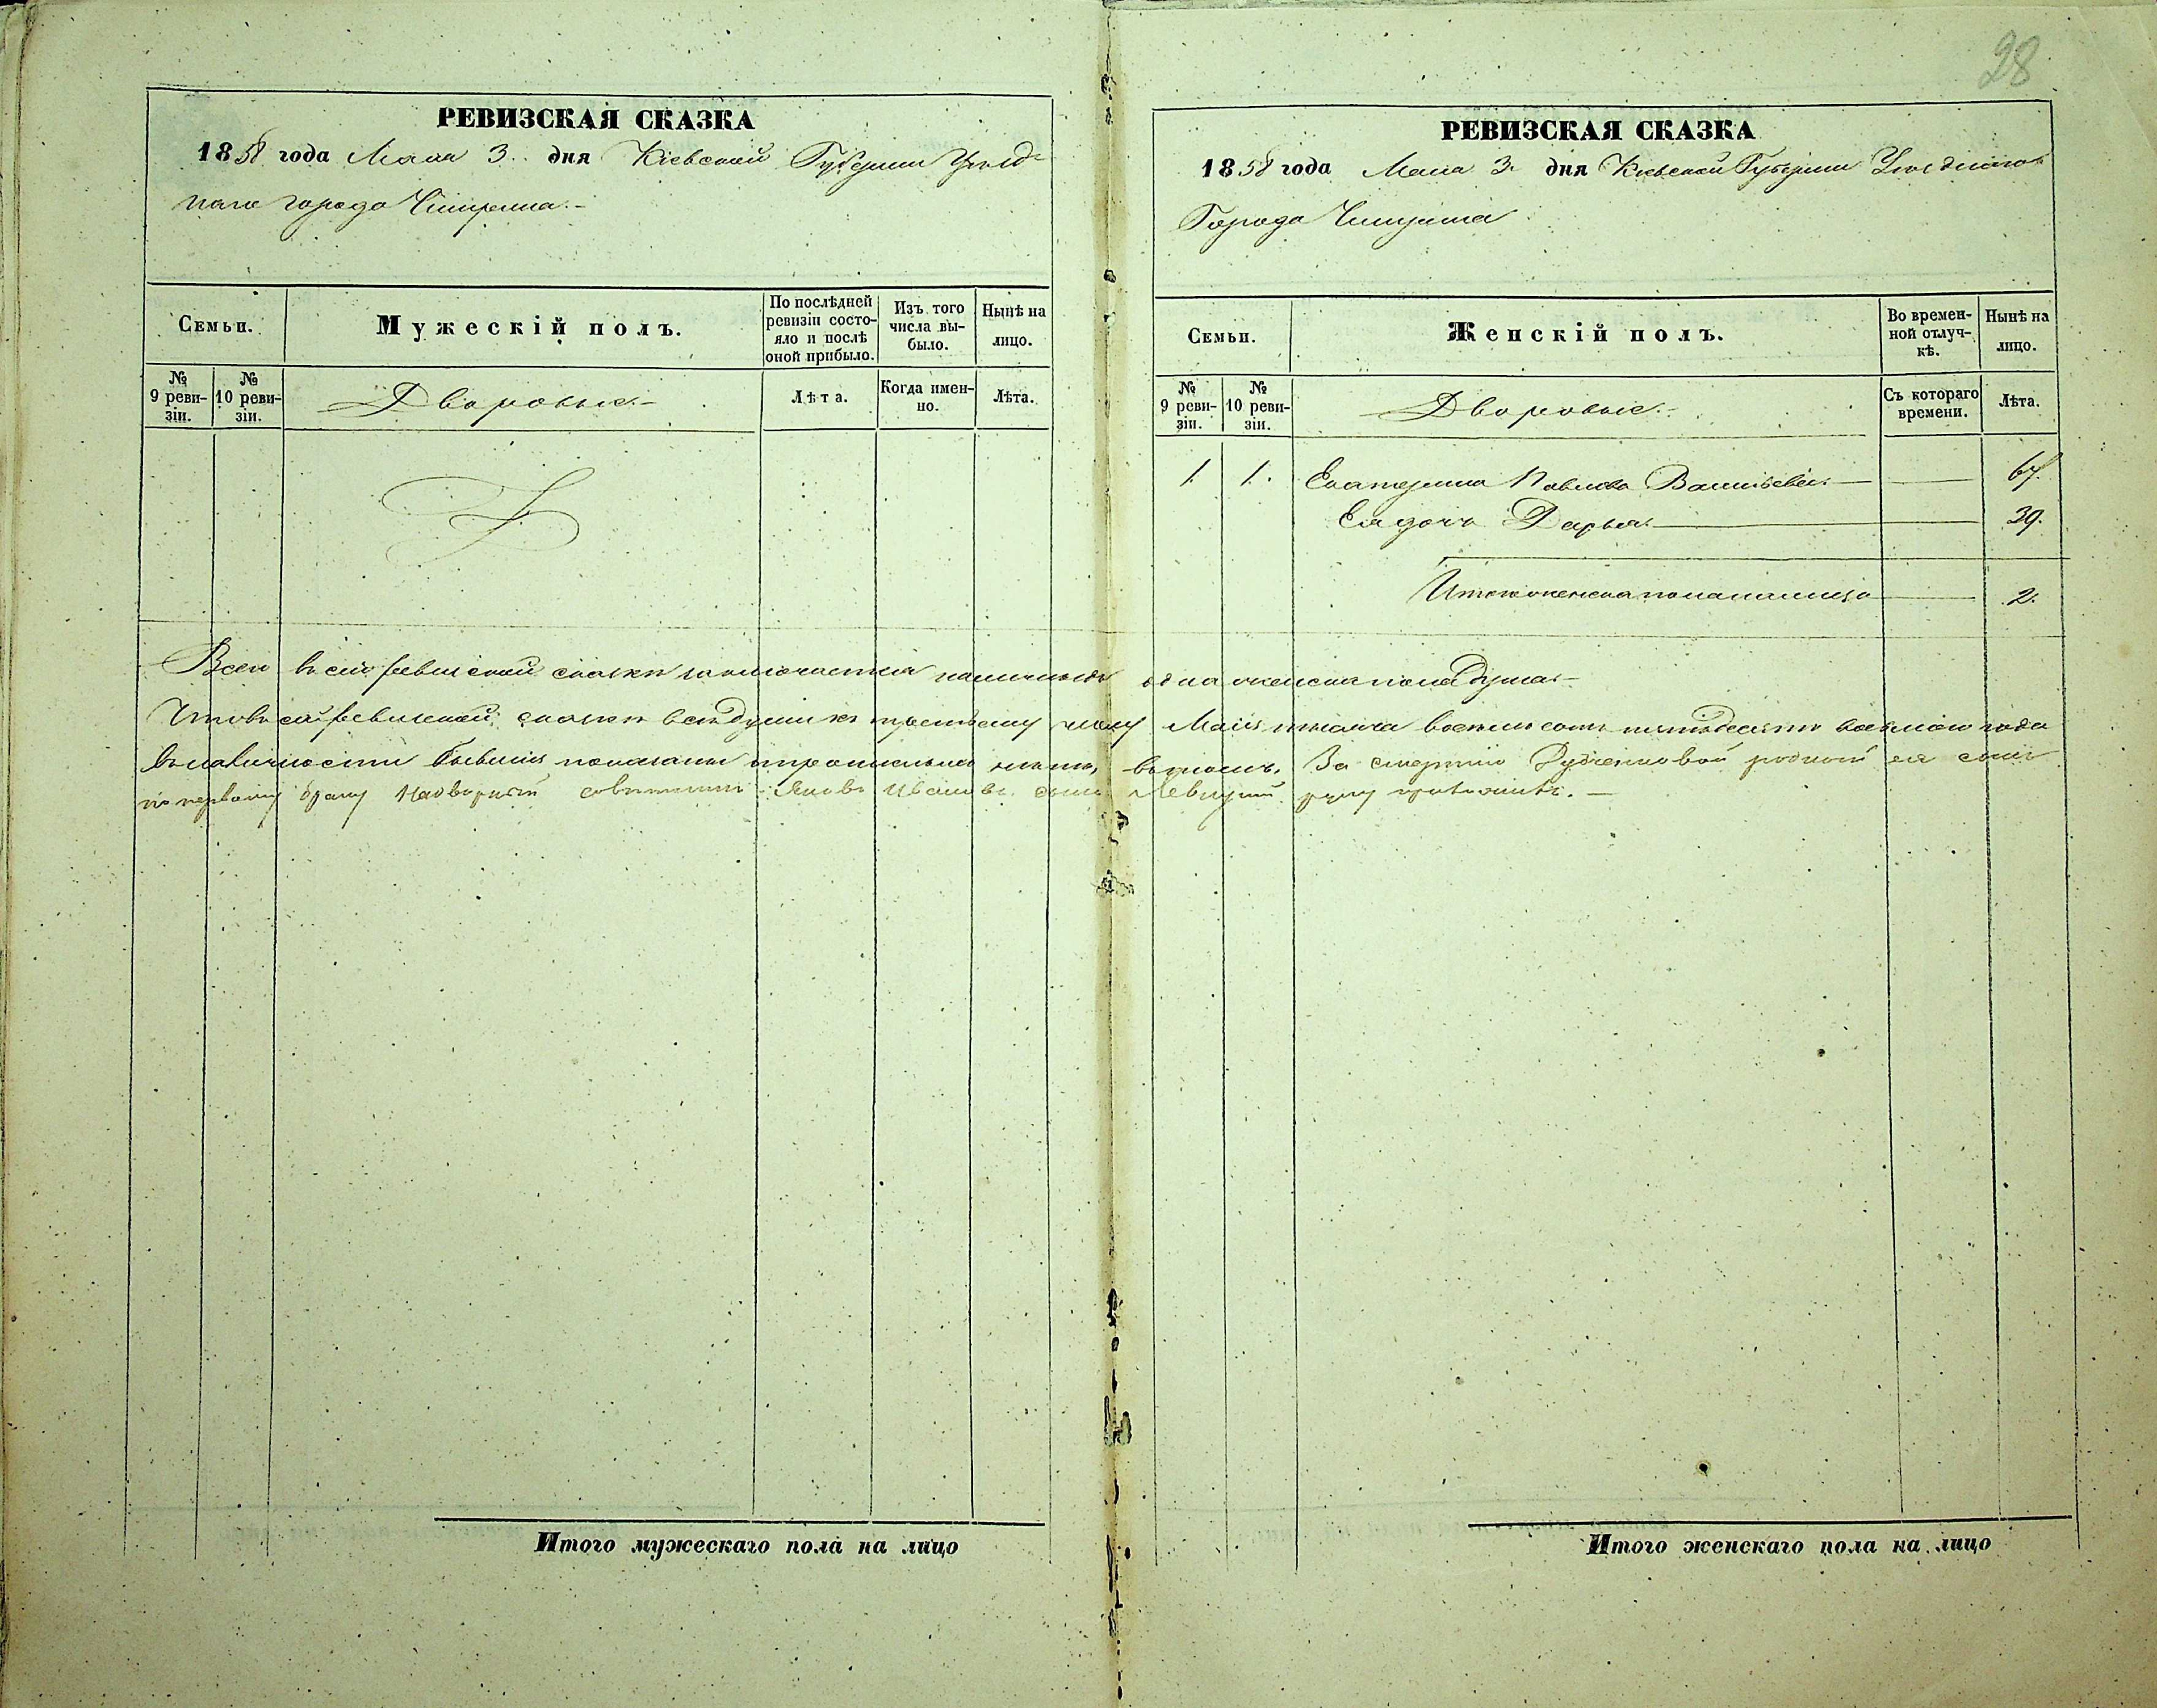 28
РЕВИЗСКАЯ СКАЗКА
1858 года Мая 3. дня Кіевской Губерніи Уѣзд-
наго города Чигирина.-
Семьи.
Мужескій полъ.
По послѣдней ревизіи состо-яло и послѣ оной прибыло.
Изъ того числа вы-было.
Нынѣ на лицо.
№ 9 реви-зіи.
№ 10 реви-зіи.
Дворовые.-
Лѣта.
Когда имен-но.
Лѣта.
РЕВИЗСКАЯ СКАЗКА
1858 года Мая 3. дня Кіевской Губерніи Уѣзднаго
Города Чигирина
Семьи.
Женскій полъ.
Во времен-ной отлуч-кѣ.
Нынѣ на лицо.
№ 9 реви-зіи.
№ 10 реви-зіи.
Дворовые.-
Съ котораго времени.
Лѣта.
1. 1. Екатерина Павлова 67.
Ея дочь Дарья 39.
Итого женска пола на лицо 2.
Всего въ сей ревизской сказкѣ заключается одна женска пола душа.-
Что въ сей ревизской сказкѣ всѣ души къ третьему числу Маія тысяча восемьсотъ пятьдесятъ восьмаго года
въ наличности бывшія показаны въ томъ. За смертію родной ея сынъ
по первому браку Надворный совѣтникъ Яковъ Ивановъ сынъ Левицкій руку приложилъ.-
Итого мужескаго пола на лицо
Итого женскаго пола на лицо